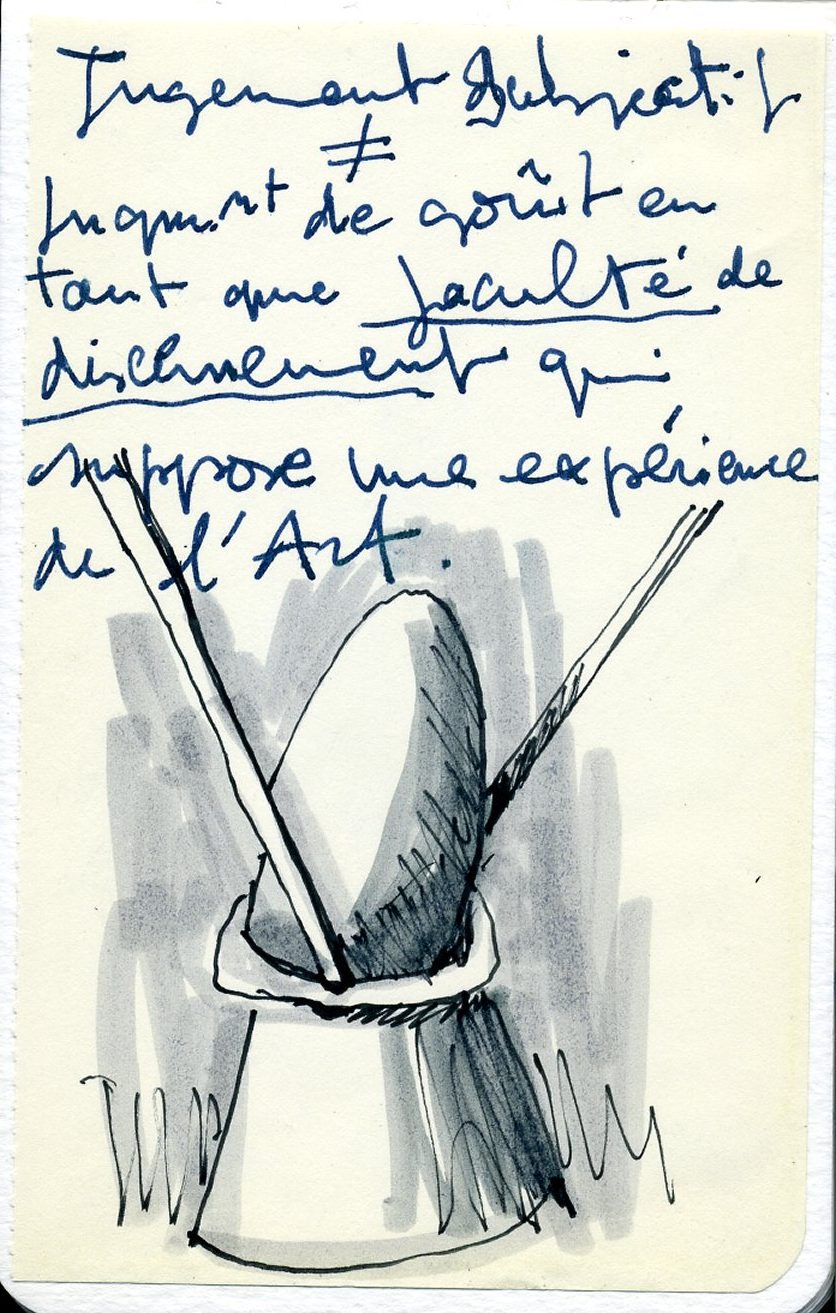 Jugement subjectif
≠
jugement de goût en
tant que faculté de
discernement qui
suppose une expérience
de l'Art.